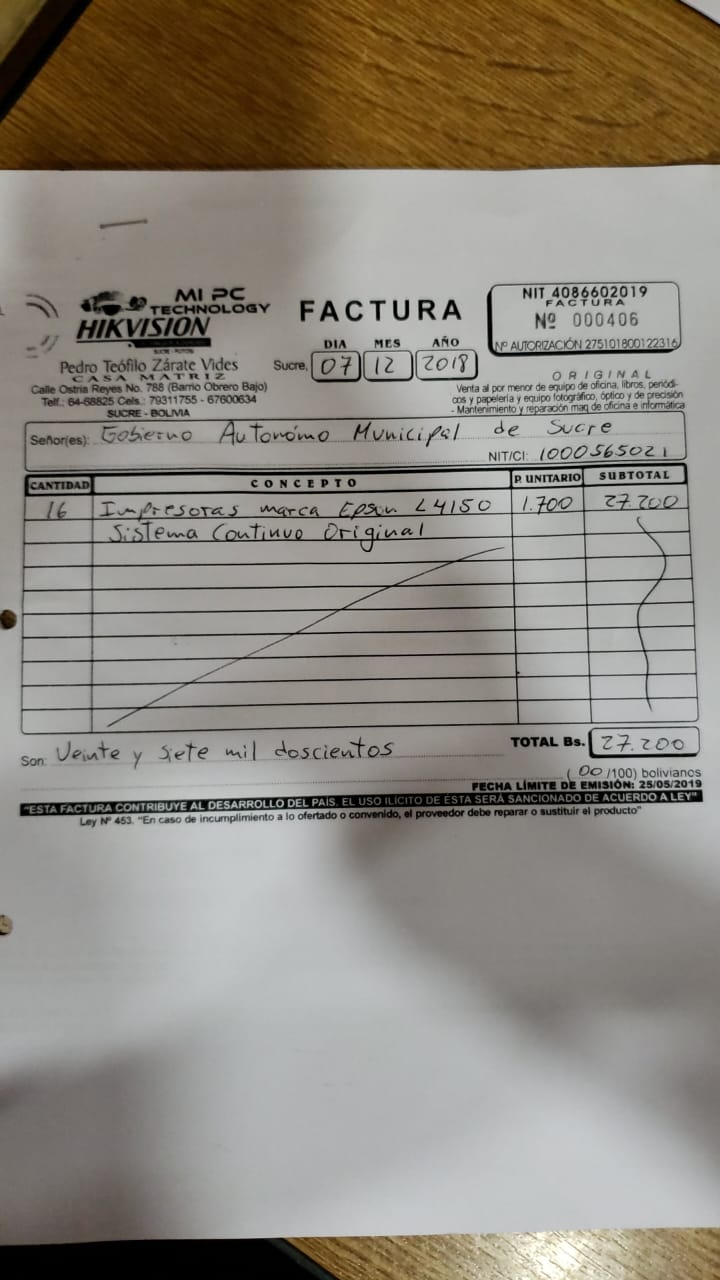 MI PC
TECHNOLOGY
HIKVISION
Pedro Teófilo Zárate Vides
CASA MATRIZ
Calle Ostria Reyes No. 788 (Barrio Obrero Bajo)
Telf.: 64-68825 Cels.: 79311755 - 67600634
SUCRE - BOLIVIA
FACTURA
DIA MES AÑO
Sucre, 07 12 2018
NIT 4086602019
FACTURA
Nº 000406
Nº AUTORIZACIÓN 275101800122316
ORIGINAL
Venta al por menor de equipo de oficina, libros, periódi-
cos y papelería y equipo fotográfico, óptico y de precisión
- Mantenimiento y reparación maq de oficina e informática
Señor(es): Gobierno Autonómo Municipal de Sucre
NIT/CI: 1000565021
CANTIDAD CONCEPTO P. UNITARIO SUBTOTAL
16 Impresoras marca Epson L4150 1.700 27.200
Sistema Continuo Original
Son: Veinte y siete mil doscientos
TOTAL Bs. 27.200
(00/100) bolivianos
FECHA LÍMITE DE EMISIÓN: 25/05/2019
"ESTA FACTURA CONTRIBUYE AL DESARROLLO DEL PAÍS. EL USO ILÍCITO DE ÉSTA SERÁ SANCIONADO DE ACUERDO A LEY"
Ley Nº 453. "En caso de incumplimiento a lo ofertado o convenido, el proveedor debe reparar o sustituir el producto"